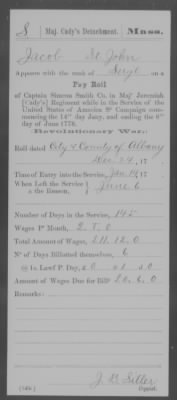 S | Maj. Cady's Detachment. | Mass.
Jacob St John
Appears with the rank of Sergt on a
Pay Roll
of Captain Simeon Smith Co. in Maj Jeremiah
[Cady's] Regiment while in the Service of the
United States of America Campaign com-
mencing the 14th day Jany. and ending the 6th
day of June 1776.
Revolutionary War.
Roll dated City & County of Albany
Dec 24, 17
Time of Entry into the Service, Jan 14, 17
When Left the Service } June 6
& the Reason,
Number of Days in the Service, 145
Wages Pr Month, 2. 8. 0
Total Amount of Wages, £11. 12. 0
No of Days Billotted themselves, 6
Lawf Pr Day, £0
Amount of Wages Due for Bill
Remarks:
(546)
Copyist.